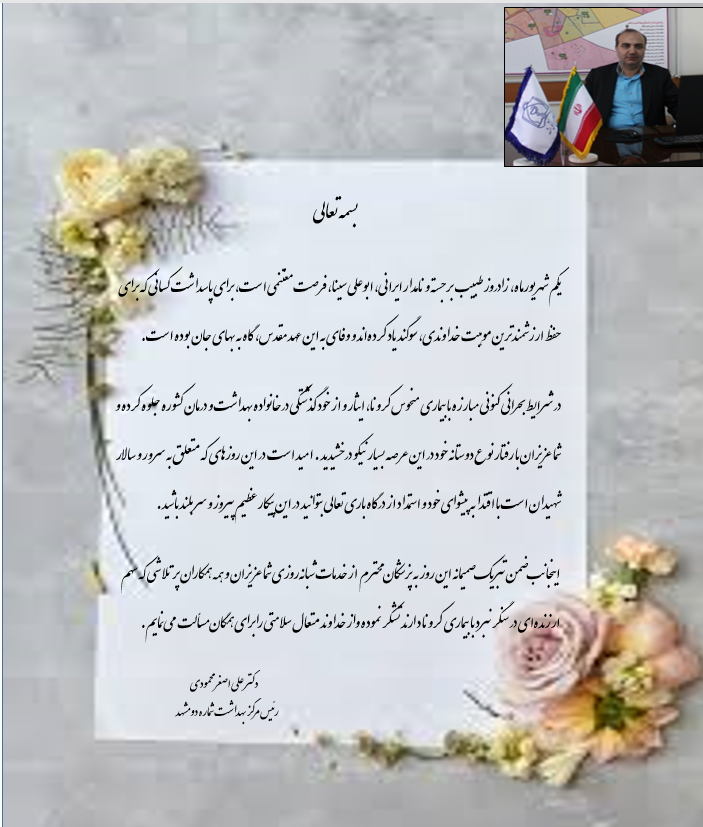 بسمه تعالی
یکم شهریورماه، زادروز طبیب برجسته و نامدار ایرانی، ابوعلی سینا، فرصت مغتنمی است، برای پاسداشت کسانی که برای
حفظ ارزشمندترین موهبت خداوندی، سوگند یاد کرده‌اند و وفای به این عهد مقدس، گاه به بهای جان بوده است.
در شرایط بحرانی کنونی مبارزه با بیماری منحوس کرونا، ایثار و از خودگذشتگی در خانواده بهداشت و درمان کشور جلوه کرده و
شما عزیزان با رفتار نوع دوستانه خود در این عرصه بسیار نیکو درخشیدید. امید است در این روزهای که متعلق به سرور و سالار
شهیدان است با اقتدا به پیشوای خود و استمداد از درگاه باری تعالی بتوانید در این پیکار عظیم پیروز و سربلند باشید.
اینجانب ضمن تبریک صمیمانه این روز به پزشکان محترم از خدمات شبانه روزی شما عزیزان و همه همکاران پر تلاشی که سهم
ارزنده‌ای در سنگر نبرد با بیماری کرونا دارند تشکر نموده و از خداوند متعال سلامتی را برای همگان مسألت می‌نمایم.
دکتر علی اصغر محمودی
رئیس مرکز بهداشت شماره دو مشهد